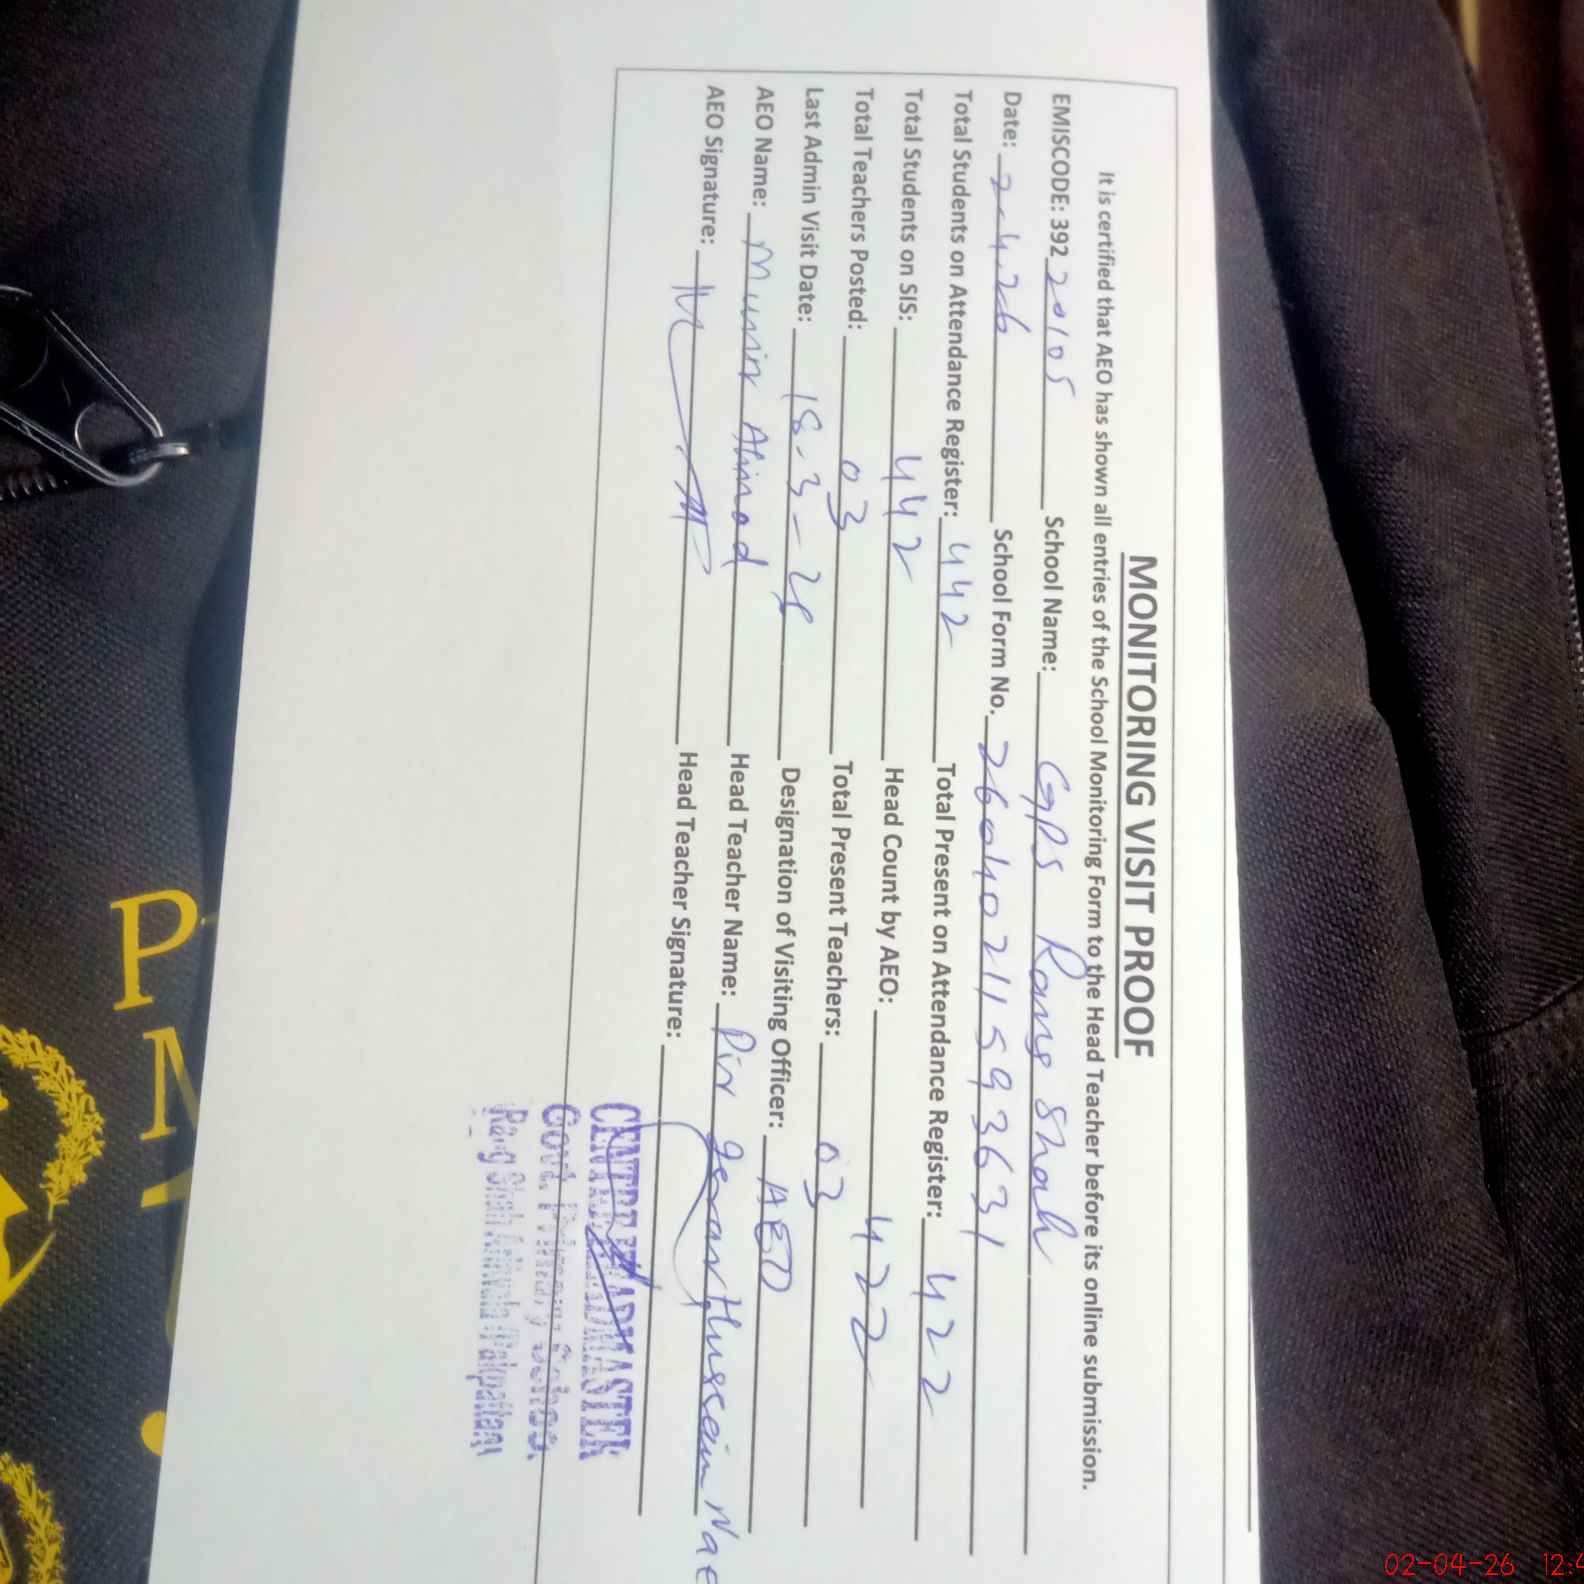 MONITORING VISIT PROOF
It is certified that AEO has shown all entries of the School Monitoring Form to the Head Teacher before its online submission.
EMISCODE: 392 20105 School Name: GPS Rang Shah
Date: 2-4-26 School Form No. 26040211593631
Total Students on Attendance Register: 442 Total Present on Attendance Register: 422
Total Students on SIS: 442 Head Count by AEO: 422
Total Teachers Posted: 03 Total Present Teachers: 03
Last Admin Visit Date: 18-3-26 Designation of Visiting Officer: AEO
AEO Name: Munir Ahmad Head Teacher Name: Pir Hussain
AEO Signature: Head Teacher Signature:
CENTRE HEADMASTER
Govt. Primary School
Rang Shah Pakpattan
P
02-04-26 12:4